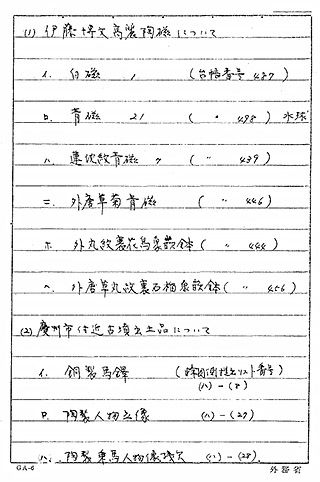 (1) 伊藤博文高麗陶磁について
イ. 白磁 (台帳番号 487)
ロ. 青磁 (〃 498)
ハ. 蓮花紋青磁 (〃 439)
ニ. 外唐草菊青磁 (〃 446)
ホ. 外丸紋裏花鳥象嵌鉢 (〃 444)
ヘ. 外唐草丸紋裏石榴象嵌鉢 (〃 456)
(2) 慶州市付近古墳出土品について
イ. 銅製馬鐸
(ハ)-(8)
ロ. 陶製人物立像 (ハ)-(27)
ハ. 陶製乗馬人物像残欠 (ハ)-(28)
GA-6 外務省